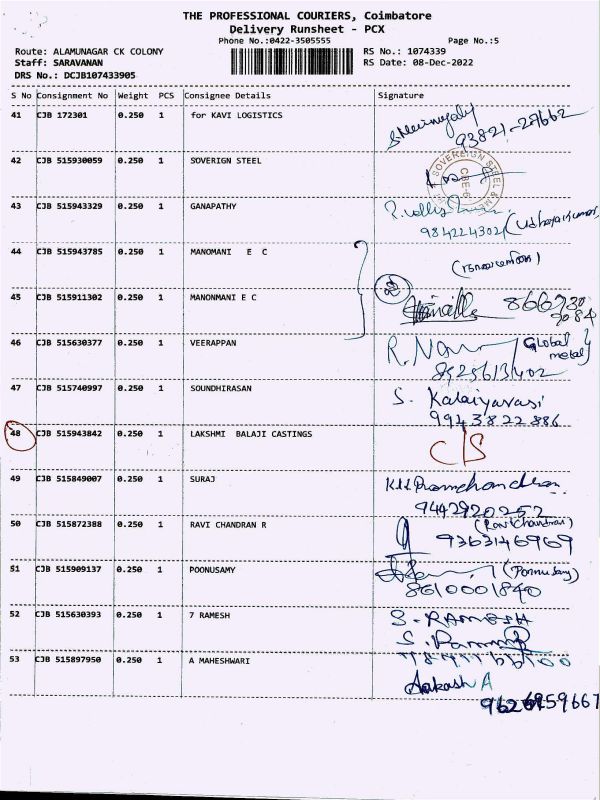 THE PROFESSIONAL COURIERS, Coimbatore
Delivery Runsheet - PCX
Phone No.:0422-3505555 Page No.:5
Route: ALAMUNAGAR CK COLONY RS No.: 1074339
Staff: SARAVANAN RS Date: 08-Dec-2022
DRS No.: DCJB107433905
S No Consignment No Weight PCS Consignee Details Signature
41 CJB 172301 0.250 1 for KAVI LOGISTICS
93821-27662
42 CJB 515930059 0.250 1 SOVERIGN STEEL
SOVEREIGN STEEL & M
CBE-6
43 CJB 515943329 0.250 1 GANAPATHY
9842243021
44 CJB 515943785 0.250 1 MANOMANI E C
45 CJB 515911302 0.250 1 MANONMANI E C
866730
3084
46 CJB 515630377 0.250 1 VEERAPPAN
Global
metal
8525613402
47 CJB 515740997 0.250 1 SOUNDHIRASAN
S. Kalaiyarasi
9943822886
48 CJB 515943842 0.250 1 LAKSHMI BALAJI CASTINGS
C/S
49 CJB 515849007 0.250 1 SURAJ
9442920252
50 CJB 515872388 0.250 1 RAVI CHANDRAN R
(Ravichandran)
9363146969
51 CJB 515909137 0.250 1 POONUSAMY
(Ponnusamy)
8610001840
52 CJB 515630393 0.250 1 7 RAMESH
S. RAMESH
53 CJB 515897950 0.250 1 A MAHESHWARI
Aakash A